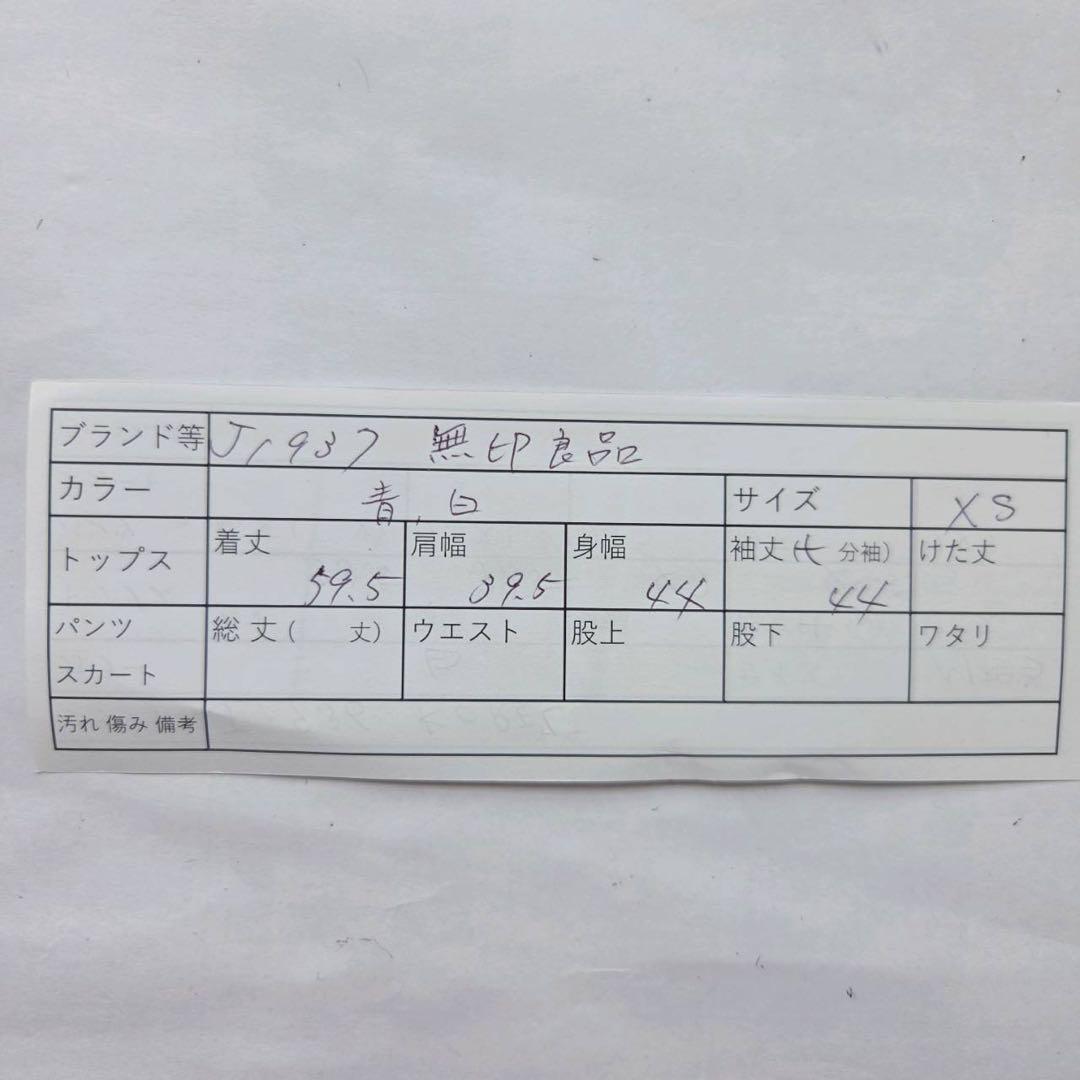 ブランド等 J1937 無印良品
カラー 青,白 サイズ XS
トップス 着丈 59.5 肩幅 39.5 身幅 44 袖丈(七 分袖) 44 けた丈
パンツ スカート 総丈( 丈) ウエスト 股上 股下 ワタリ
汚れ 傷み 備考